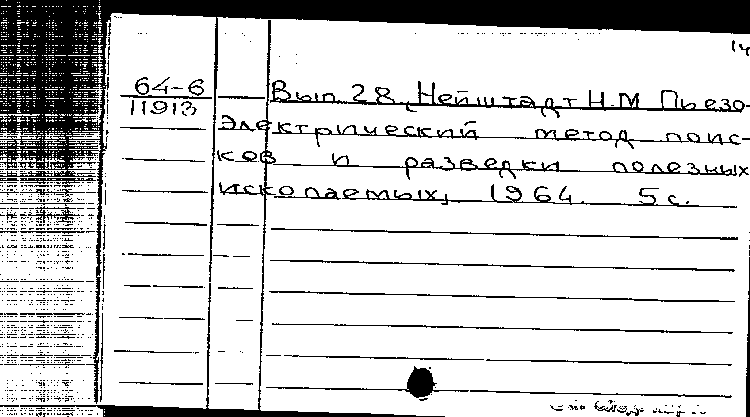 14
64-6
11913
Вып. 28. Нейштадт Н.М. Пьезо-
электрический метод поис-
ков и разведки полезных
ископаемых, 1964. 5 с.